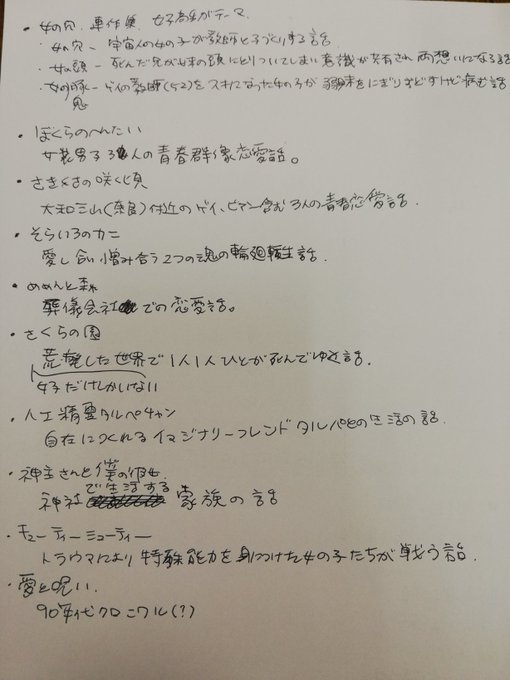 ・女の穴 連作集 女子高生がテーマ
・女の穴 － 宇宙人の女の子が教師と子づくりする話
・女の頭 － 死んだ兄が妹の頭にとりついてしまい意識が共有され両想いになる話
・女の豚 － ゲイの教師(52)をスキになった女の子が弱末をにぎりおどすけど病む話
・ぼくらのへんたい
女装男子3人の青春群像恋愛話。
・さきくさの咲く頃
大和三山(奈良)付近のゲイ、ビアン含む3人の青春恋愛話.
・そらいろのカニ
愛し合い憎み合う2つの魂の輪廻転生話.
・めめんと森
葬儀会社での恋愛話。
・さくらの園
荒廃した世界で1人1人ひとが死んでゆく話.
女子だけしかいない
・人工精霊タルパチャン
自在につくれるイマジナリーフレンドタルパとの生活の話.
・神主さんと僕の彼女
神社で生活する家族の話
・キューティーミューティー
トラウマにより特殊能力を身につけた女の子たちが戦う話.
・愛と呪い
90年代クロニクル(?)